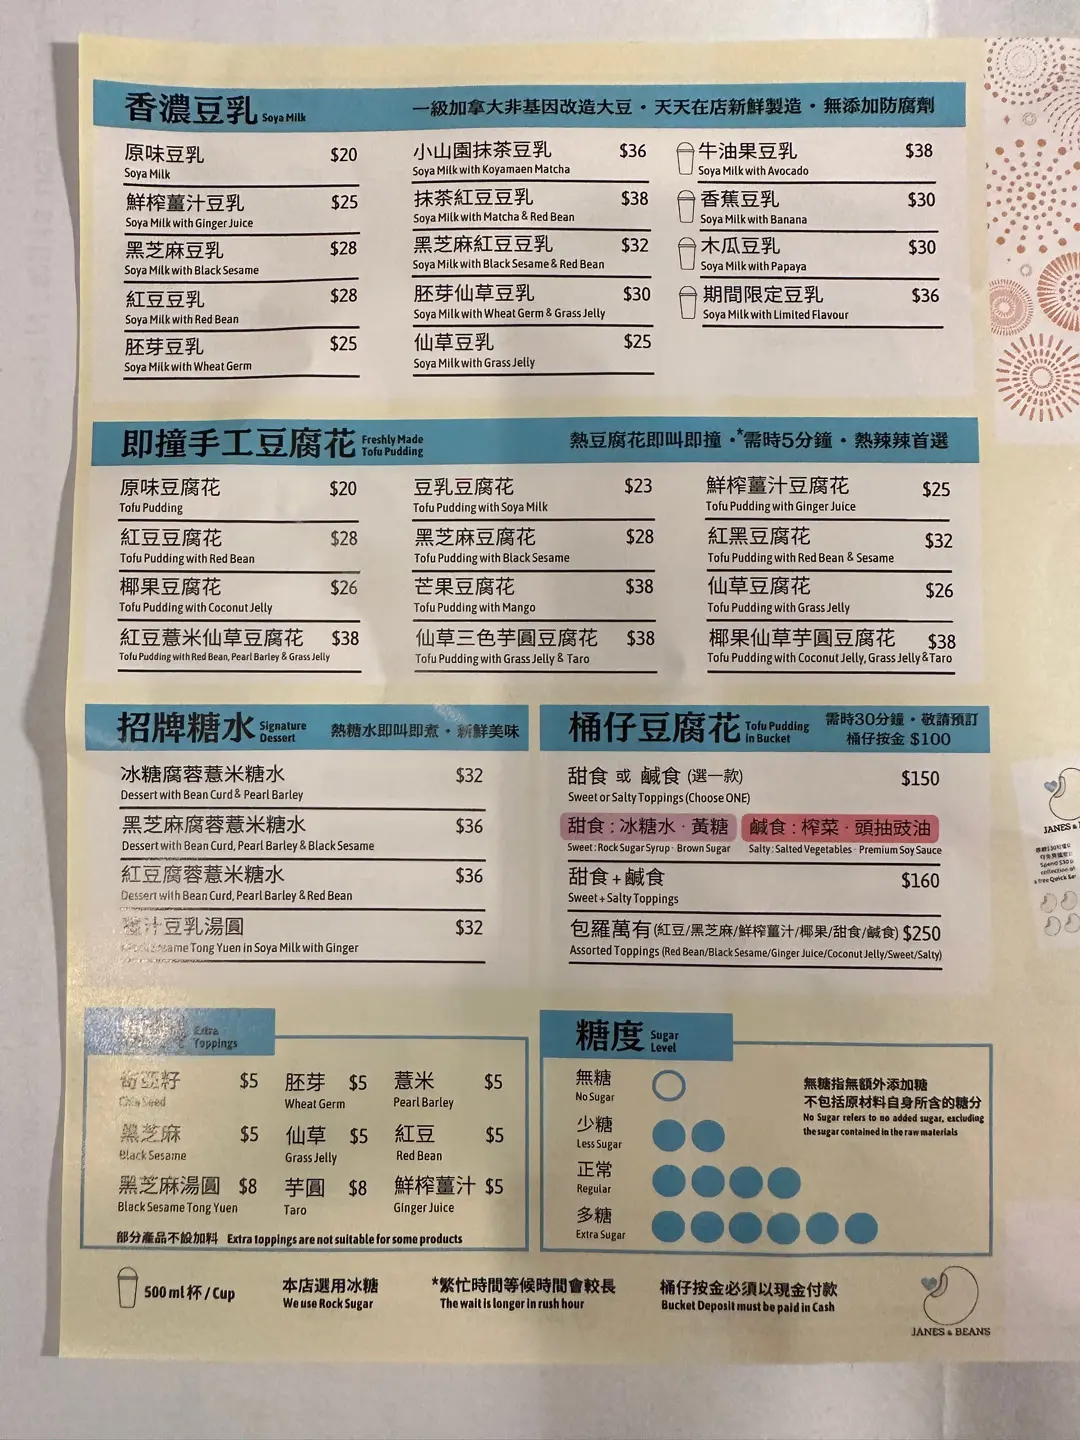 香濃豆乳 Soya Milk 一級加拿大非基因改造大豆・天天在店新鮮製造・無添加防腐劑
原味豆乳 $20
Soya Milk
鮮榨薑汁豆乳 $25
Soya Milk with Ginger Juice
黑芝麻豆乳 $28
Soya Milk with Black Sesame
紅豆豆乳 $28
Soya Milk with Red Bean
胚芽豆乳 $25
Soya Milk with Wheat Germ
小山園抹茶豆乳 $36
Soya Milk with Koyamaen Matcha
抹茶紅豆豆乳 $38
Soya Milk with Matcha & Red Bean
黑芝麻紅豆豆乳 $32
Soya Milk with Black Sesame & Red Bean
胚芽仙草豆乳 $30
Soya Milk with Wheat Germ & Grass Jelly
仙草豆乳 $25
Soya Milk with Grass Jelly
牛油果豆乳 $38
Soya Milk with Avocado
香蕉豆乳 $30
Soya Milk with Banana
木瓜豆乳 $30
Soya Milk with Papaya
期間限定豆乳 $36
Soya Milk with Limited Flavour
即撞手工豆腐花 Freshly Made Tofu Pudding 熱豆腐花即叫即撞・*需時5分鐘・熱辣辣首選
原味豆腐花 $20
Tofu Pudding
紅豆豆腐花 $28
Tofu Pudding with Red Bean
椰果豆腐花 $26
Tofu Pudding with Coconut Jelly
紅豆薏米仙草豆腐花 $38
Tofu Pudding with Red Bean, Pearl Barley & Grass Jelly
豆乳豆腐花 $23
Tofu Pudding with Soya Milk
黑芝麻豆腐花 $28
Tofu Pudding with Black Sesame
芒果豆腐花 $38
Tofu Pudding with Mango
仙草三色芋圓豆腐花 $38
Tofu Pudding with Grass Jelly & Taro
鮮榨薑汁豆腐花 $25
Tofu Pudding with Ginger Juice
紅黑豆腐花 $32
Tofu Pudding with Red Bean & Sesame
仙草豆腐花 $26
Tofu Pudding with Grass Jelly
椰果仙草芋圓豆腐花 $38
Tofu Pudding with Coconut Jelly, Grass Jelly & Taro
招牌糖水 Signature Dessert 熱糖水即叫即煮・新鮮美味
冰糖腐蓉薏米糖水 $32
Dessert with Bean Curd & Pearl Barley
黑芝麻腐蓉薏米糖水 $36
Dessert with Bean Curd, Pearl Barley & Black Sesame
紅豆腐蓉薏米糖水 $36
Dessert with Bean Curd, Pearl Barley & Red Bean
薑汁豆乳湯圓 $32
Sesame Tong Yuen in Soya Milk with Ginger
桶仔豆腐花 Tofu Pudding in Bucket
需時30分鐘・敬請預訂
桶仔按金 $100
甜食 或 鹹食 (選一款) $150
Sweet or Salty Toppings (Choose ONE)
甜食 : 冰糖水 · 黃糖 鹹食 : 榨菜 · 頭抽豉油
Sweet : Rock Sugar Syrup · Brown Sugar Salty : Salted Vegetables · Premium Soy Sauce
甜食 + 鹹食 $160
Sweet + Salty Toppings
包羅萬有 (紅豆/黑芝麻/鮮榨薑汁/椰果/甜食/鹹食) $250
Assorted Toppings (Red Bean/Black Sesame/Ginger Juice/Coconut Jelly/Sweet/Salty)
Extra Toppings
籽 $5
Chia Seed
黑芝麻 $5
Black Sesame
黑芝麻湯圓 $8
Black Sesame Tong Yuen
胚芽 $5
Wheat Germ
仙草 $5
Grass Jelly
芋圓 $8
Taro
薏米 $5
Pearl Barley
紅豆 $5
Red Bean
鮮榨薑汁 $5
Ginger Juice
部分產品不設加料 Extra toppings are not suitable for some products
糖度 Sugar Level
無糖
No Sugar
少糖
Less Sugar
正常
Regular
多糖
Extra Sugar
無糖指無額外添加糖
不包括原材料自身所含的糖分
No Sugar refers to no added sugar, excluding
the sugar contained in the raw materials
500 ml 杯 / Cup
本店選用冰糖
We use Rock Sugar
*繁忙時間等候時間會較長
The wait is longer in rush hour
桶仔按金必須以現金付款
Bucket Deposit must be paid in Cash
JANES & BEANS
JANES &
Spend $30
collection of
a free Quick